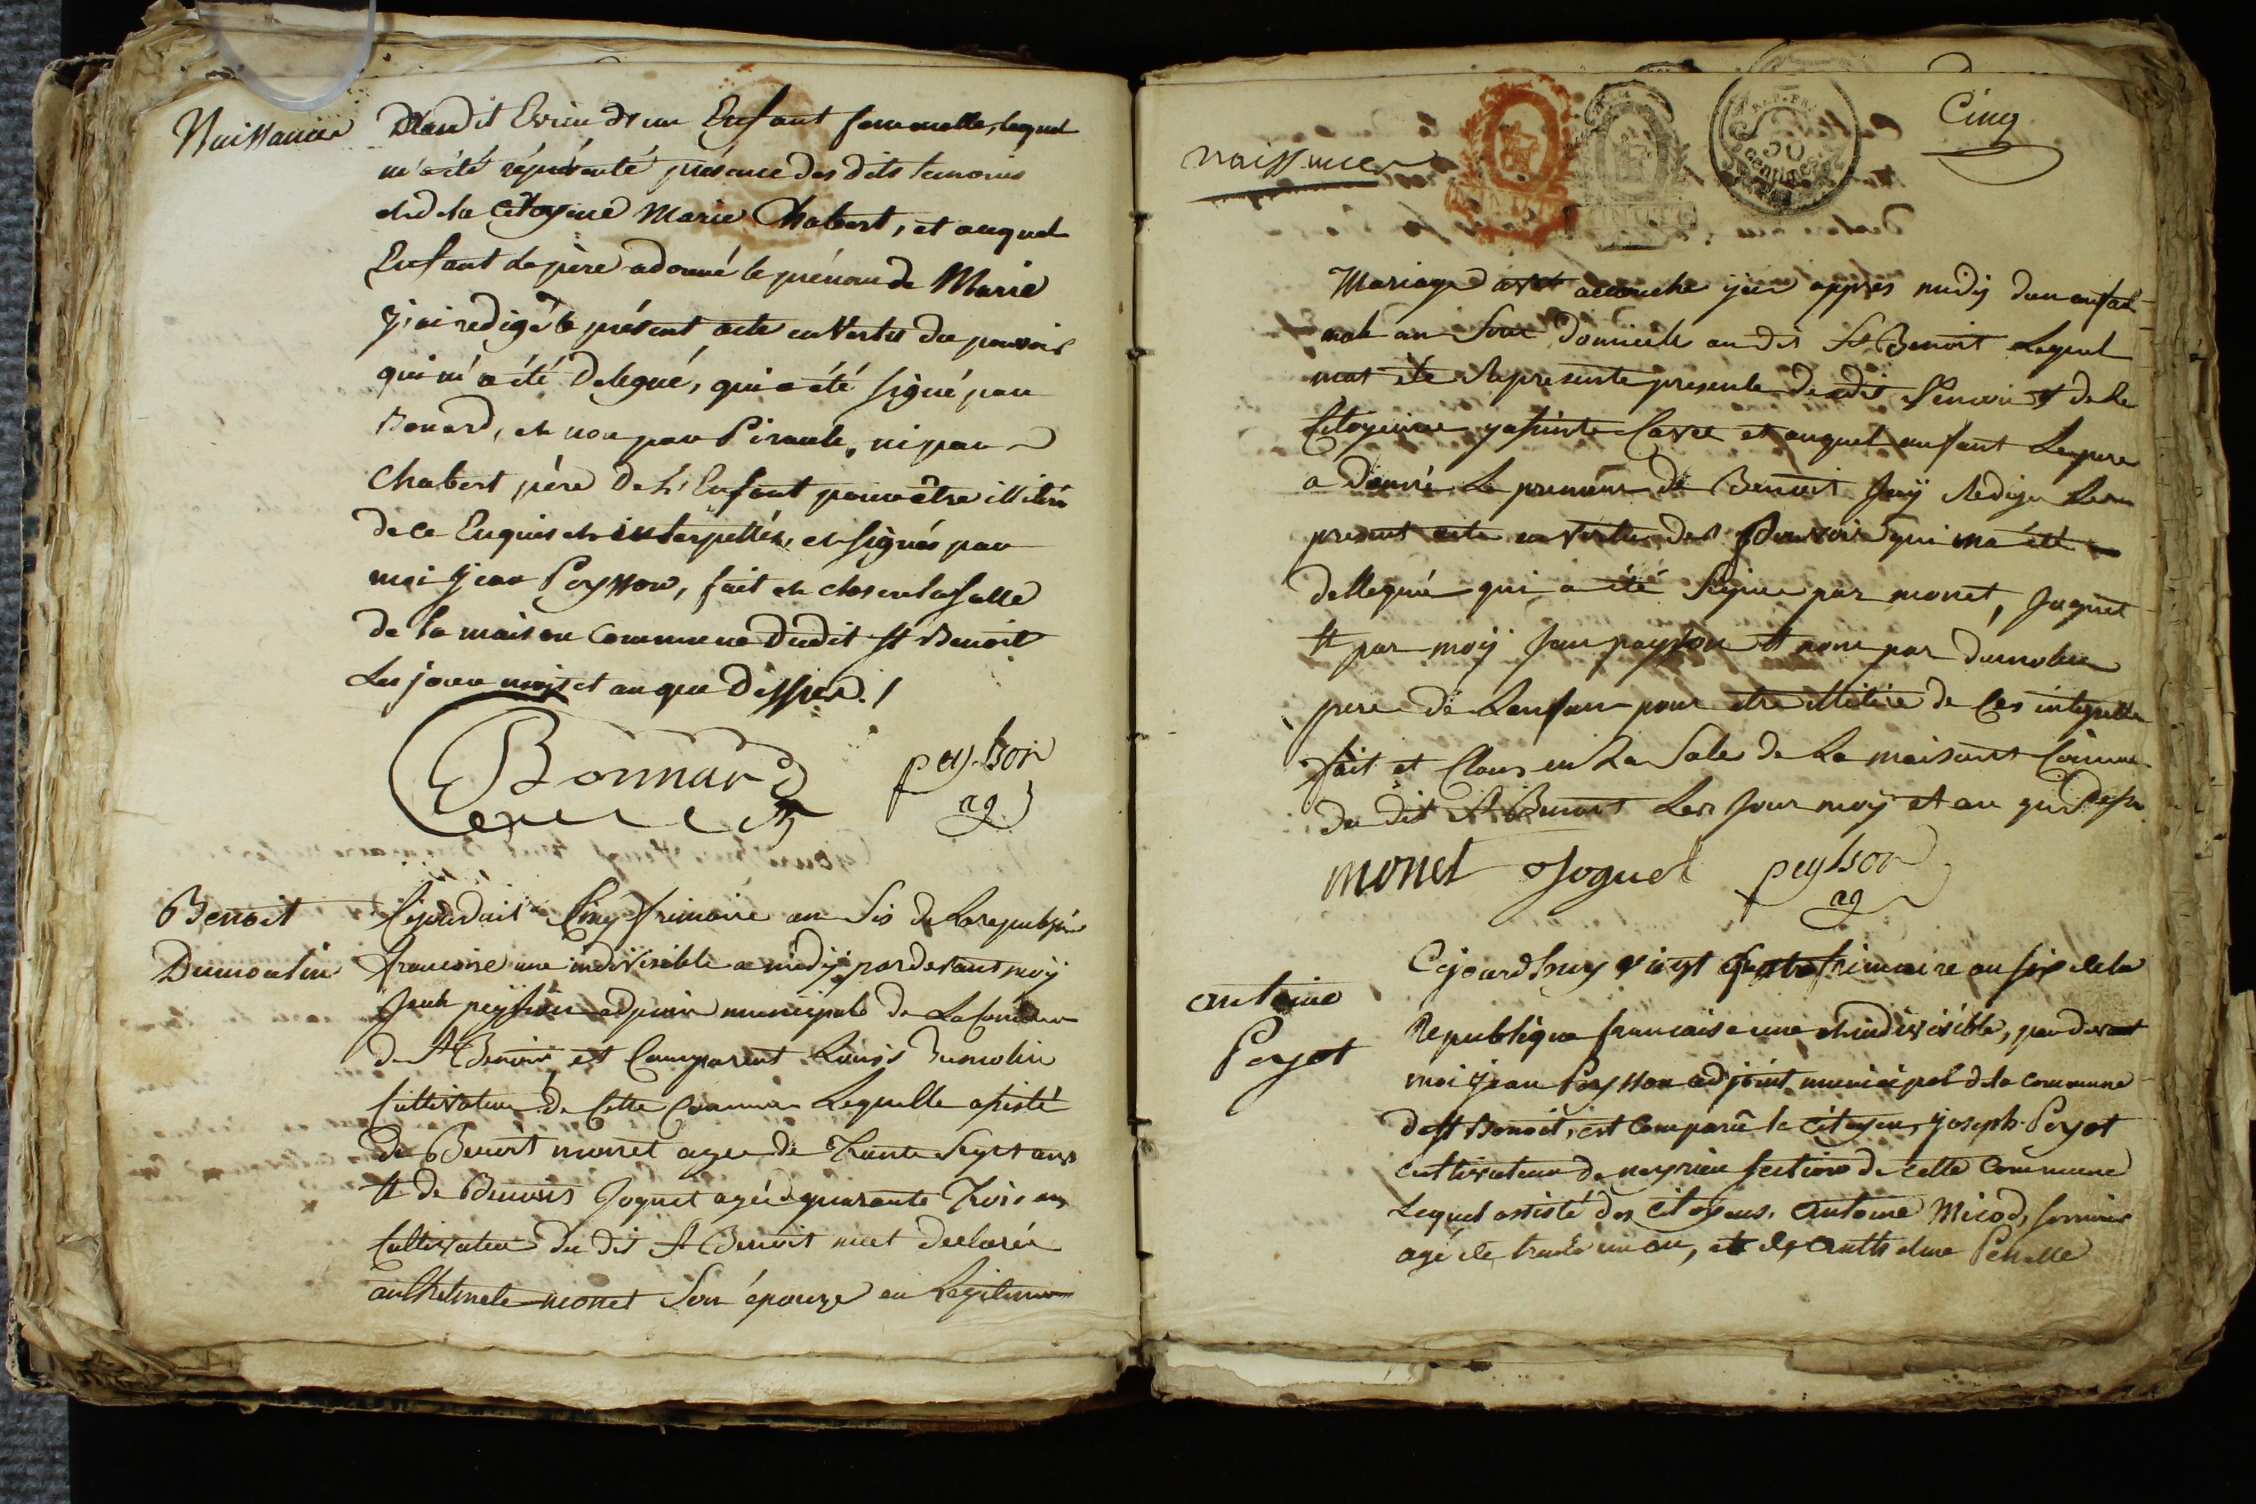 Naissances
Dlaudit Evieu d'un Enfant femmelle, lequel
m'a été réprésenté présence des dits temoins
et de la Citoyene Marie Chabert, et auquel
Enfant le père a donné le prénom de Marie
j'ai redigé le présent acte en Vertu du pouvoir
qui m'a été Delegué, qui a été signé par
Bonard, et non par Pirault, ni par
Chabert père De L'Enfant pour être illitéré
de ce Enquis et interpellés, et signés par
moi Jean Peysson, fait et clos en la salle
de la maison Commune Dudit St Benoit
Les jour mois et an que Dessus. /
Bonnard
peysson
ag
Benoit
Dumoulin
Cejourduit Cinq frimaire an Sis de La republique
francoise une indivisible a midÿ pardevant moÿ
Jeuh peysson adjoin municipale de La Commune
de St Benoit, est Comparent Louis Dumolin
Cultivateur de Cette Commune Lequelle asisté
de Benoit monet agee de Trante Sept ans
tt de Benois Joguet agée quarante Trois ans
Cultivateur du dit St Benoit met Declarée
anthelmete monet Son épouze en Legitimme
Cinq
naissance
REP. FR.
50
centimes
Mariage est accouche yer appres midÿ dun anfat
mal an Sont Domicile au dit St Benoit Lequel
mat été Representé presente desdit temoin et de La
Citoyenne yasinte Cavet et auquel anfant Lepere
a Donné Le prenom de Benoit Jaÿ Redige Le
present acte en vertu des Pouvoir qui ma été
dellegué qui a été Signie par monet, Joguet
tt par moÿ Jean peysson tt nom par dumolin
pere de Lanfan pour etre illitere de Ces interpelle
fait et Claus en La Sale de La maisons Comune
du dit St Benoit Les Jour moÿ et an que Desu
monet Joguet peysson
ag
antoine
Peyot
Cejourd'huy vingt quatre frimaire an six de la
Republique francaise une et indivisible, par devant
moi Jean Peysson adjoint municipal de la commune
de St Benoit, est Comparû le citoyen, Joseph Peyot
cultivateur de neyrieu section de cette Commune
Lequel assisté des citoyens, Antoine Micod, fermier
agé de trente un an, et de Anthelme Penelle